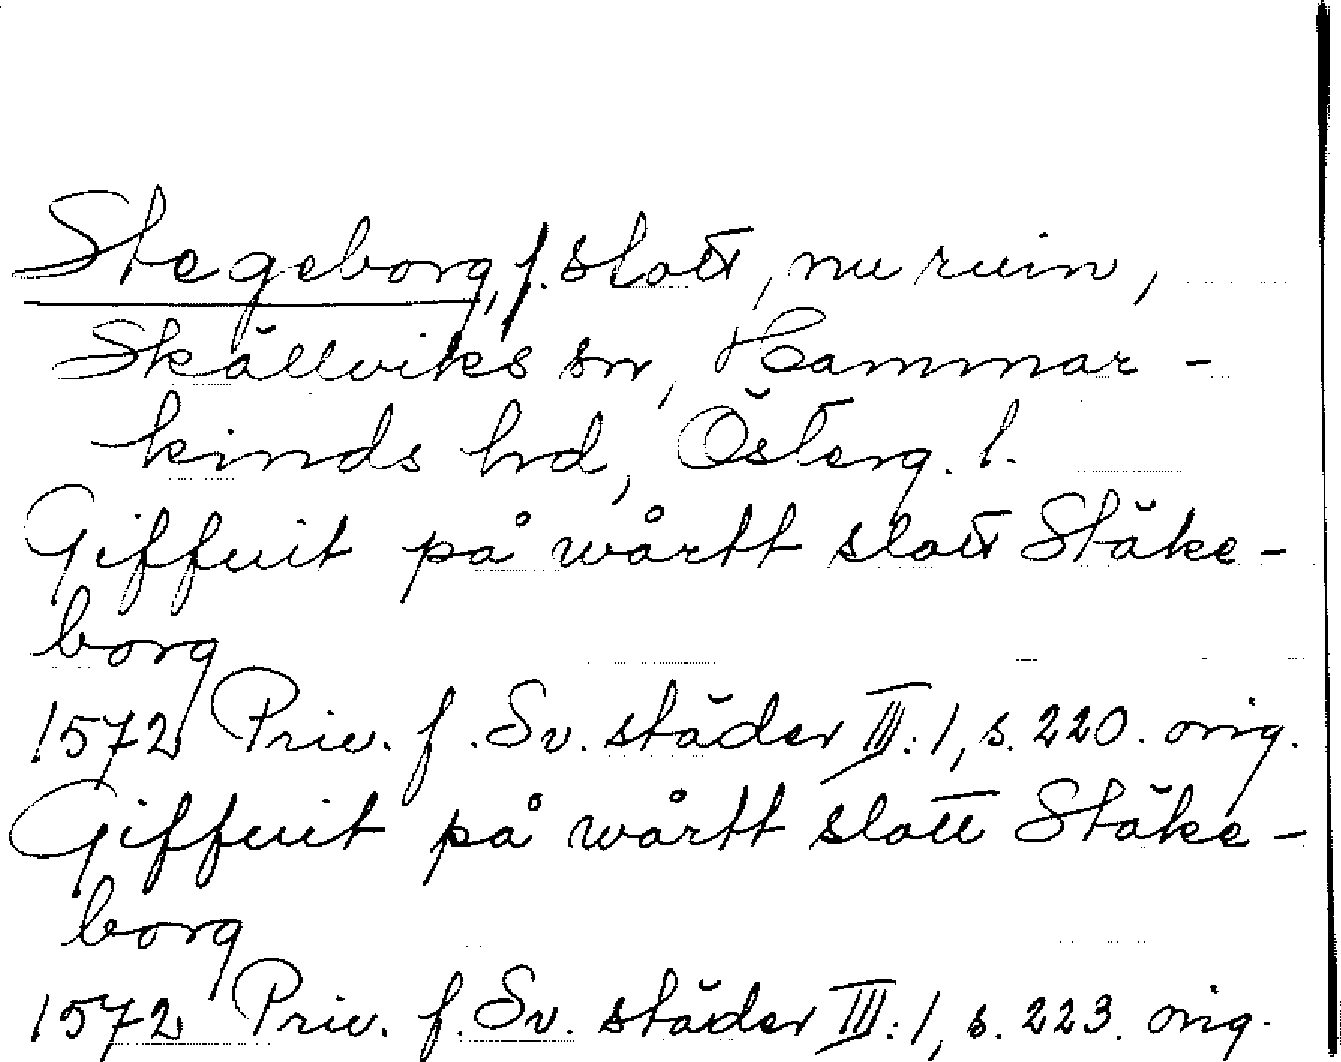 Stegeborg, f. slott, nu ruin,
Skällviks sn, Hammar-
kinds hd, Österg. l.
Giffuit på wårtt slott Stäke-
borg
1572 Priv. f. Sv. städer III:1, s. 220. orig.
Giffuit på wårtt slott Stäke-
borg
1572 Priv. f. Sv. städer III:1, s. 223. orig.